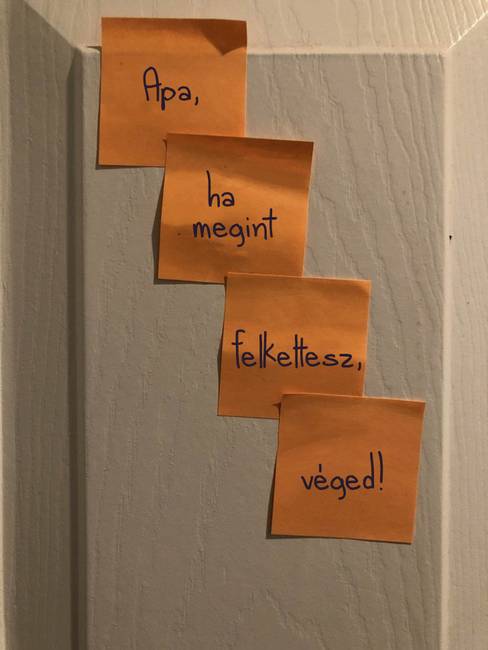 Apa,
ha
megint
felkeltesz,
véged!